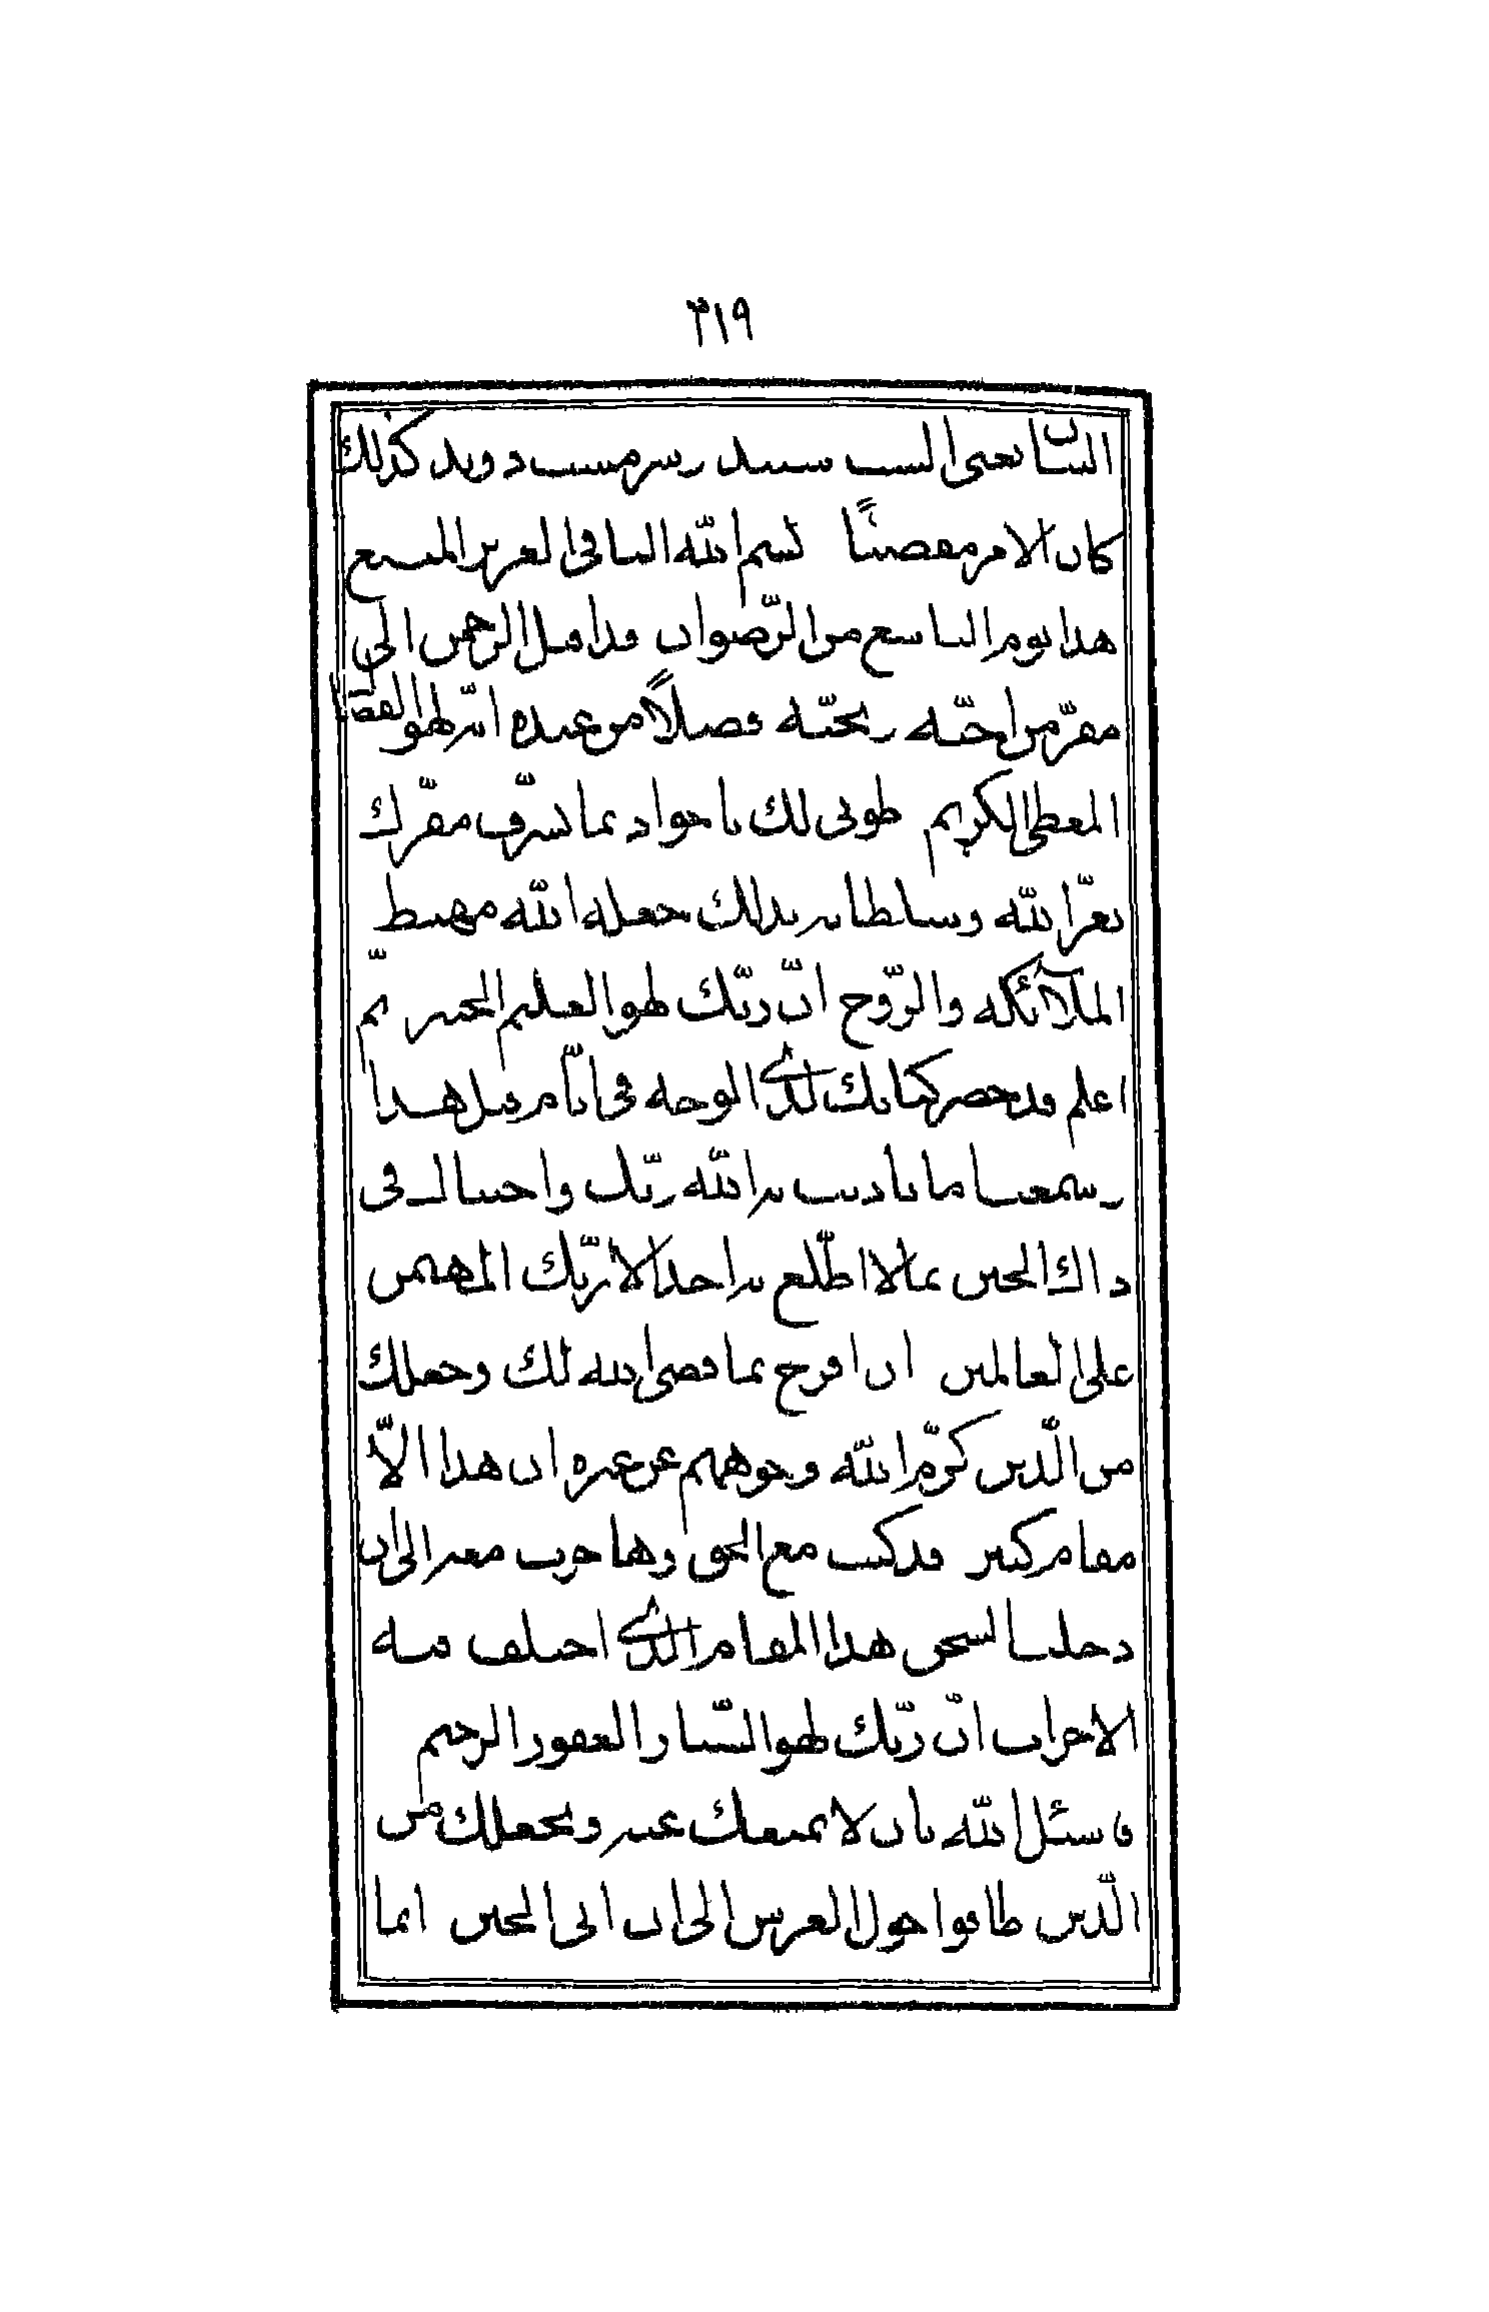 ٣١٩
كذلك
كان الامر مقضيًّا بسم الله الباقى العزيز المنيع
هذا يوم التاسع من الرّضوان قد اقبل الرحمن الى
مقرّ من احبّه بحبّه فضلاً من عنده انّه لهو الفضّال
المعطى الكريم طوبى لك يا جواد بما تشرّف مقرّك
بعزّ الله وسلطانه بذلك جعله الله مهبط
الملآئكه والرّوح انّ ربّك لهو العليم الخبير ثمّ
اعلم قد حضر كتابك لدى الوجه فى ايّام قبل هذا
وسمعنا ما ناديت به الله ربّك واجبناك فى
ذاك الحين بما لا اطّلع به احد الا ربّك المهيمن
على العالمين ان افرح بما قضى الله لك وجعلك
من الّذين كرّم الله وجوههم عن غيره ان هذا الّا
مقام كبير قد كنت مع الحق وهاجرت معه الى ان
دخلنا السجن هذا المقام الذى اختلف فيه
الاحزاب انّ ربّك لهو السّتار الغفور الرحيم
و نسئل الله بان لا يمنعك عنه ويجعلك من
الّذين طافوا حول العرش الى ان اتى الحين انما